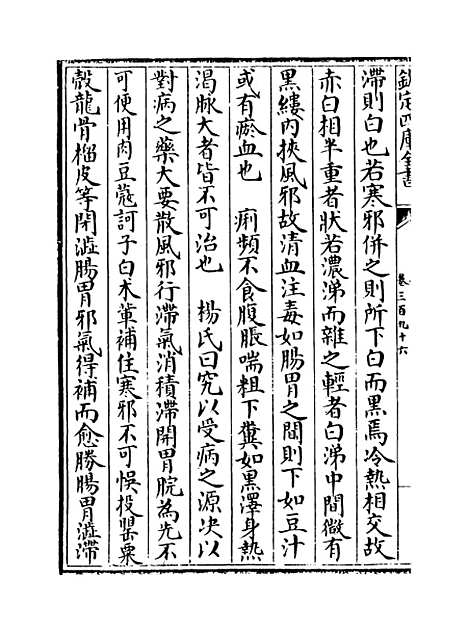 欽定四庫全書
卷三百九十六
滯則白也若寒邪併之則所下白而黑焉冷熱相交故
赤白相半重者狀若濃涕而雜之輕者白涕中間微有
黑縷內挾風邪故清血注毒如腸胃之間則下如豆汁
或有瘀血也 痢頻不食腹脹喘粗下糞如黑澤身熱
渴脉大者皆不可治也 楊氏曰究以受病之源決以
對病之藥大要散風邪行滯氣消積滯開胃脘為先不
可便用肉豆蔻訶子白木軰補住寒邪不可悞投罌粟
殼龍骨榴皮等閉澁腸胃邪氣得補而愈勝腸胃澁滯